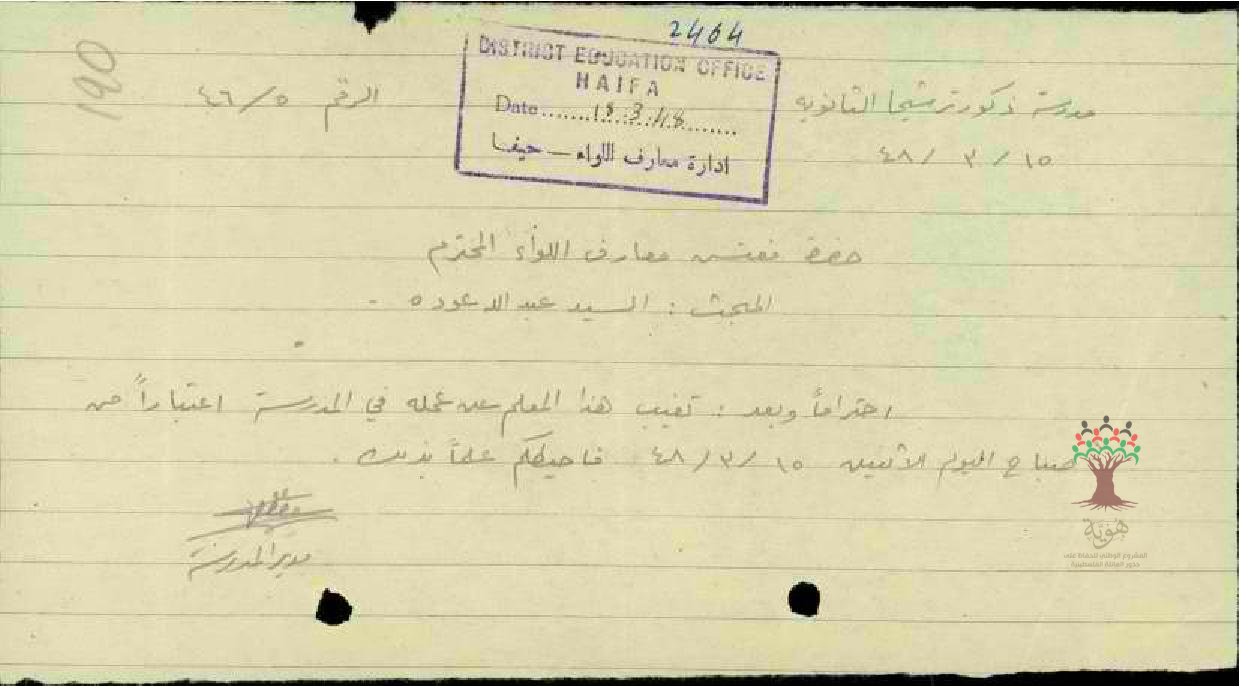 2464
190
DISTRICT EDUCATION OFFICE
HAIFA
Date ........18.3.48........
ادارة معارف اللواء — حيفا
مدرسة ذكور ترشيحا الثانويه
الرقم ٥/٤٦
١٥ / ٣ / ٤٨
مفتش معارف اللواء المحترم
المبحث : السيد عبد الله عوده .
احتراماً وبعد : تغيب هذا المعلم عن عمله في المدرسة اعتباراً من
صباح اليوم الاثنين ١٥ /٣/ ٤٨ فاحيطكم علماً بذلك .
مدير المدرسة
هوية
المشروع الوطني للحفاظ على
جذور العائلة الفلسطينية